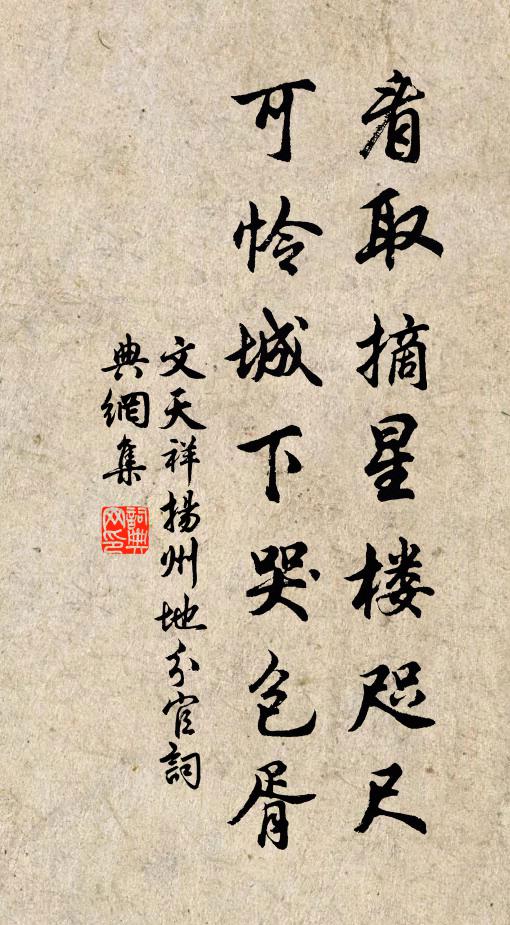 看取摘星楼咫尺
可怜城下哭包胥
文天祥揚州地分官詞
典網集
詞典网印